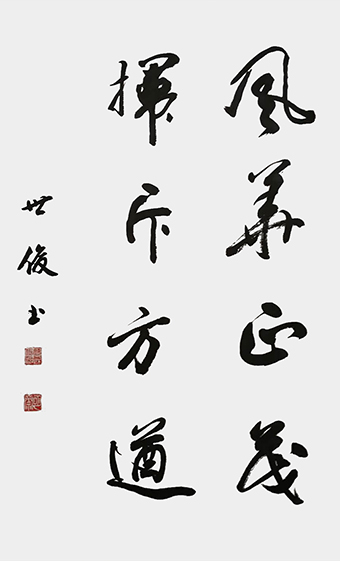 風華正茂
揮斥方遒
世俊书